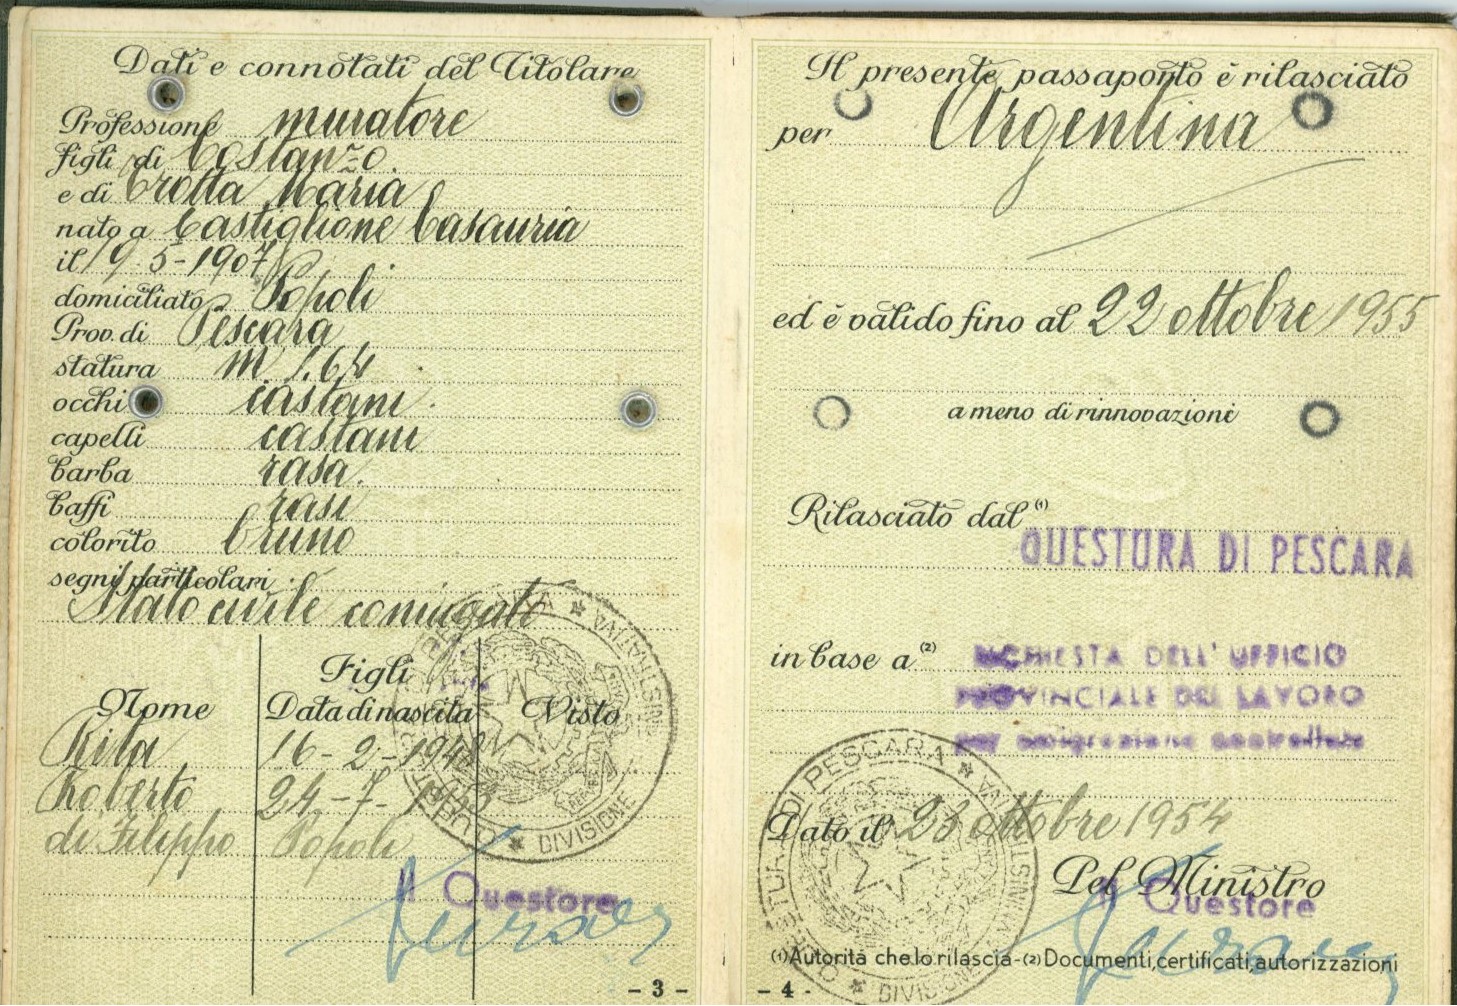 Dati e connotati del Titolare
Professione muratore
figli di Costanzo
e di Trotta Maria
nato a Castiglione Casauria
il 19-5-1907
domiciliato Popoli
Prov. di Pescara
statura m 1.64
occhi castani
capelli castani
barba rasa.
baffi rasi
colorito bruno
segni particolari
Stato civile coniugato
Figli
Nome Data di nascita Visto
Rita 16-2-1948
Roberto 24-7-
di Filippo Popoli
Il Questore
QUESTURA DI PESCARA * DIVISIONE * AMMINISTRATIVA
- 3 -
Il presente passaporto è rilasciato
per Argentina
ed è valido fino al 22 ottobre 1955
a meno di rinnovazione
Rilasciato dal (1)
QUESTURA DI PESCARA
in base a (2) RICHIESTA DELL'UFFICIO
PROVINCIALE DEL LAVORO
per emigrazione controllata
Dato il 23 ottobre 1954
Pel Ministro
Il Questore
QUESTURA DI PESCARA * AMMINISTRATIVA * DIVISIONE
(1) Autorità che lo rilascia - (2) Documenti, certificati, autorizzazioni
- 4 -